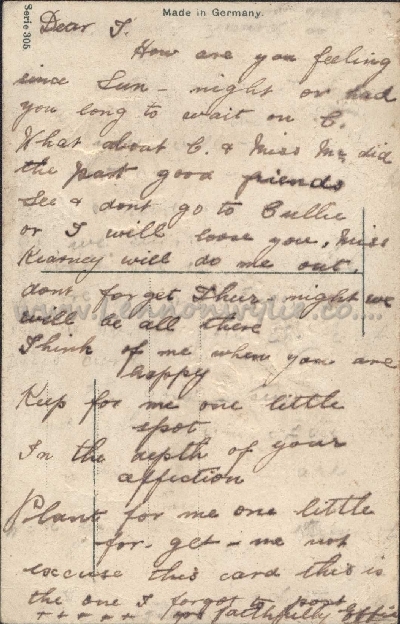 Made in Germany.
Serie 305
Dear J.
How are you feeling
since Sun - night or had
you long to wait on C.
What about C. & Miss Mc did
the part good friends
See & dont go to Cullie
or I will loose you. Miss
Kearney will do me out,
dont forget Thur. night we
will be all there
Think of me when you are
happy
Keep for me one little
spot
In the depth of your
affection
Plant for me one little
for-get-me not
excuse this card this is
the one I forgot to post
faithfully Effie